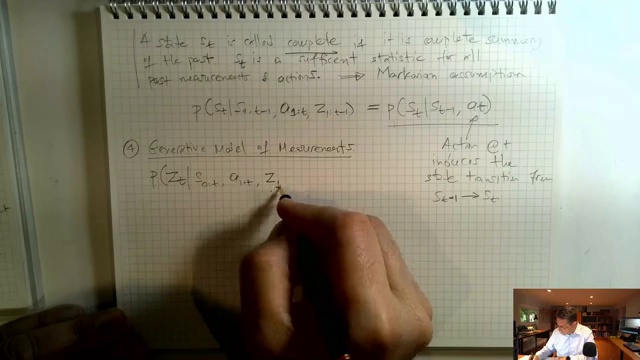 A state St is called complete if it is complete summary
of the past St is a sufficent statistic for all
past measurements & actions. ⟹ Markovian assumption
p(St | S0:t-1, a1:t, Z1:t-1) = p(St | St-1, at)
Action @ t
induces the
state transition from
St-1 → St
④ Generative Model of Measurements
p(Zt | S0:t, a1:t, Z1